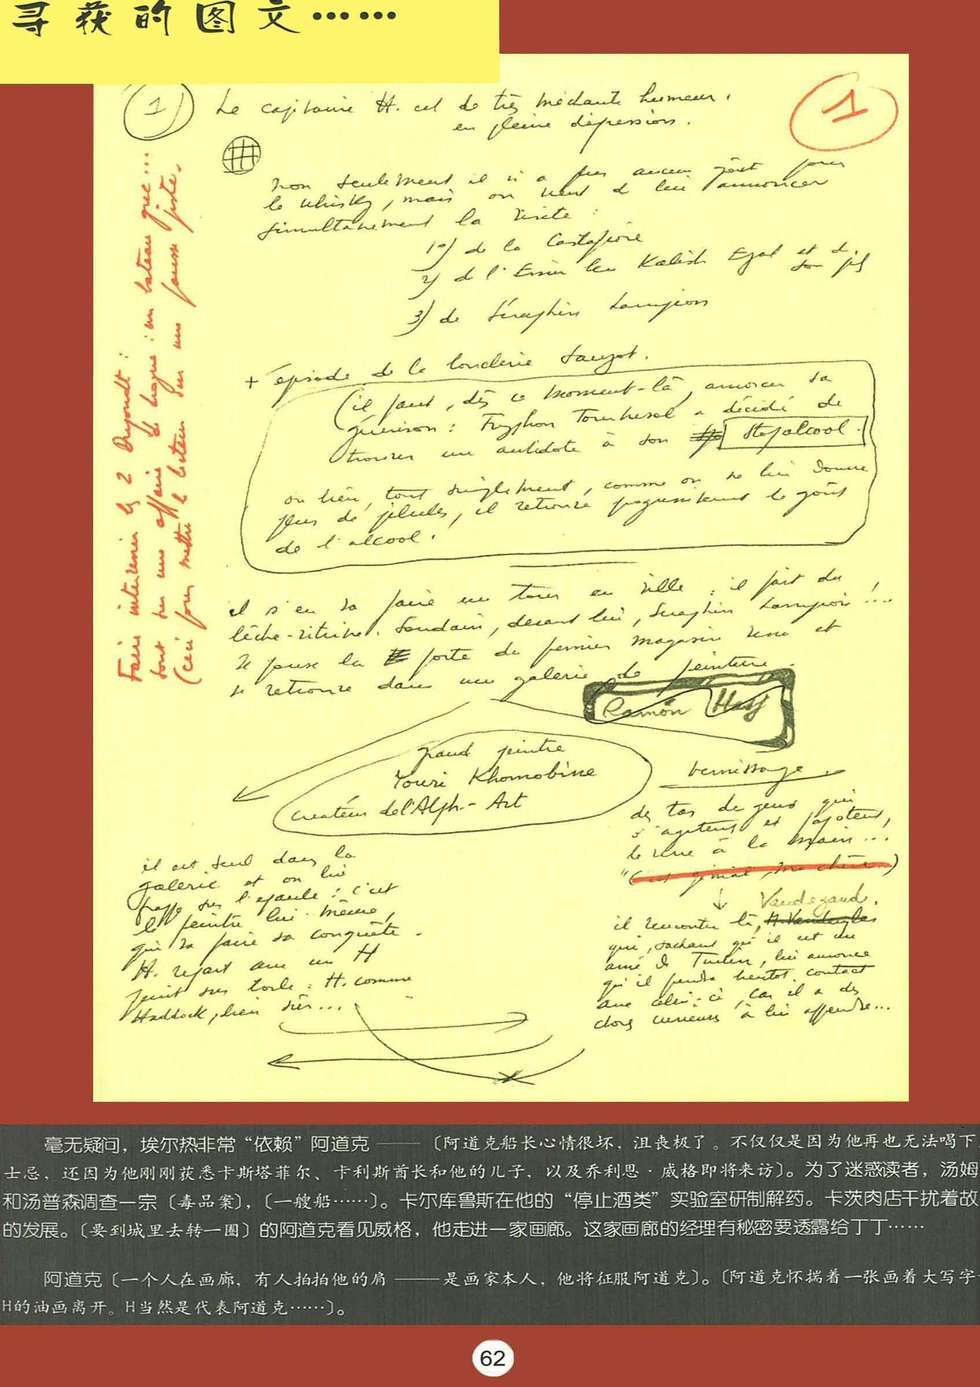 寻获的图文……
1
Le capitaine H. est de très méchante humeur.
en pleine dépression.
1
non seulement il n'a plus aucun goût pour
le whisky, mais on vient de lui annoncer
simultanément la visite :
1°) de la Castafiore
2) de l'Emir Ben Kalish Ezab et de son fils
3) de Séraphin Lampion
+ épisode de la boucherie Sanzot.
(il faut, dès ce moment-là, amorcer sa
guérison : Tryphon Tournesol a décidé de
trouver un antidote à son Stopalcool.
ou bien, tout simplement, comme on ne lui donne
plus de pilules, il retrouve progressivement le goût
de l'alcool.
il s'en va faire un tour en ville : il fait du
lèche-vitrine. Soudain, devant lui, Séraphin Lampion !...
Il pousse la porte du premier magasin venu et
se retrouve dans une galerie de peinture.
Ramón Hasj
grand peintre
Youri Khomobine
créateur de l'Alph-Art
vernissage
des tas de gens qui
s'agitent et papotent,
le verre à la main...
"(c'est génial, ma chère)
il est seul dans la
galerie et on lui
frappe sur l'épaule : c'est
le peintre lui-même,
qui va faire sa conquête.
H. repart avec un H
peint sur toile : H. comme
Haddock, bien sûr...
Vandezande,
il rencontre là,
qui, sachant qu'il est un
ami de Tintin, lui annonce
qu'il prendra bientôt contact
avec celui-ci, car il a des
choses curieuses à lui apprendre...
Faire intervenir les 2 Dupondt :
sont sur une affaire de drogue : un bateau grec...
(ceci pour mettre le lecteur sur une fausse piste.
毫无疑问，埃尔热非常“依赖”阿道克 ——〔阿道克船长心情很坏，沮丧极了。不仅仅是因为他再也无法喝下
士忌，还因为他刚刚获悉卡斯塔菲尔、卡利斯酋长和他的儿子，以及乔利恩·威格即将来访〕。为了迷惑读者，汤姆
和汤普森调查一宗〔毒品案〕，〔一艘船……〕。卡尔库鲁斯在他的“停止酒类”实验室研制解药。卡茨肉店干扰着故
的发展。〔要到城里去转一圈〕的阿道克看见威格，他走进一家画廊。这家画廊的经理有秘密要透露给丁丁……
阿道克〔一个人在画廊，有人拍拍他的肩 ——是画家本人，他将征服阿道克〕。〔阿道克怀揣着一张画着大写字
H的油画离开。H当然是代表阿道克……〕。
62